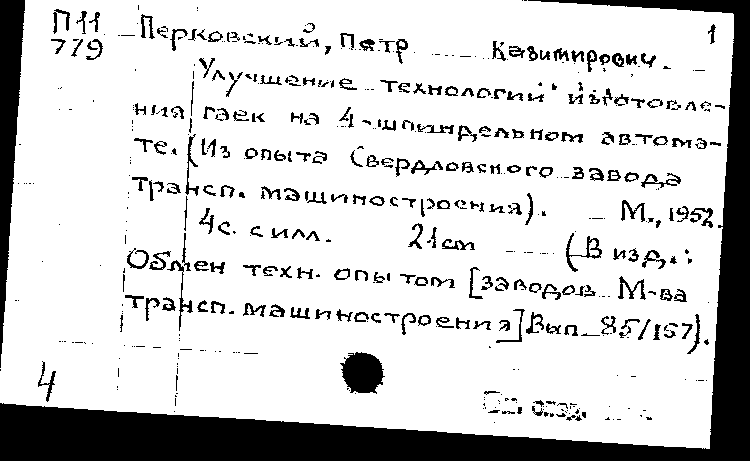 П11 Перковский, Петр Казимирович. 1
779
Улучшение технологии изготовле-
ния гаек на 4-шпиндельном автома-
те. (Из опыта Свердловского завода
Трансп. машиностроения). М., 1952.
4с. с илл. 21см (В изд.:
Обмен техн. опытом [заводов М-ва
трансп. машиностроения] Вып. 85/157).
4